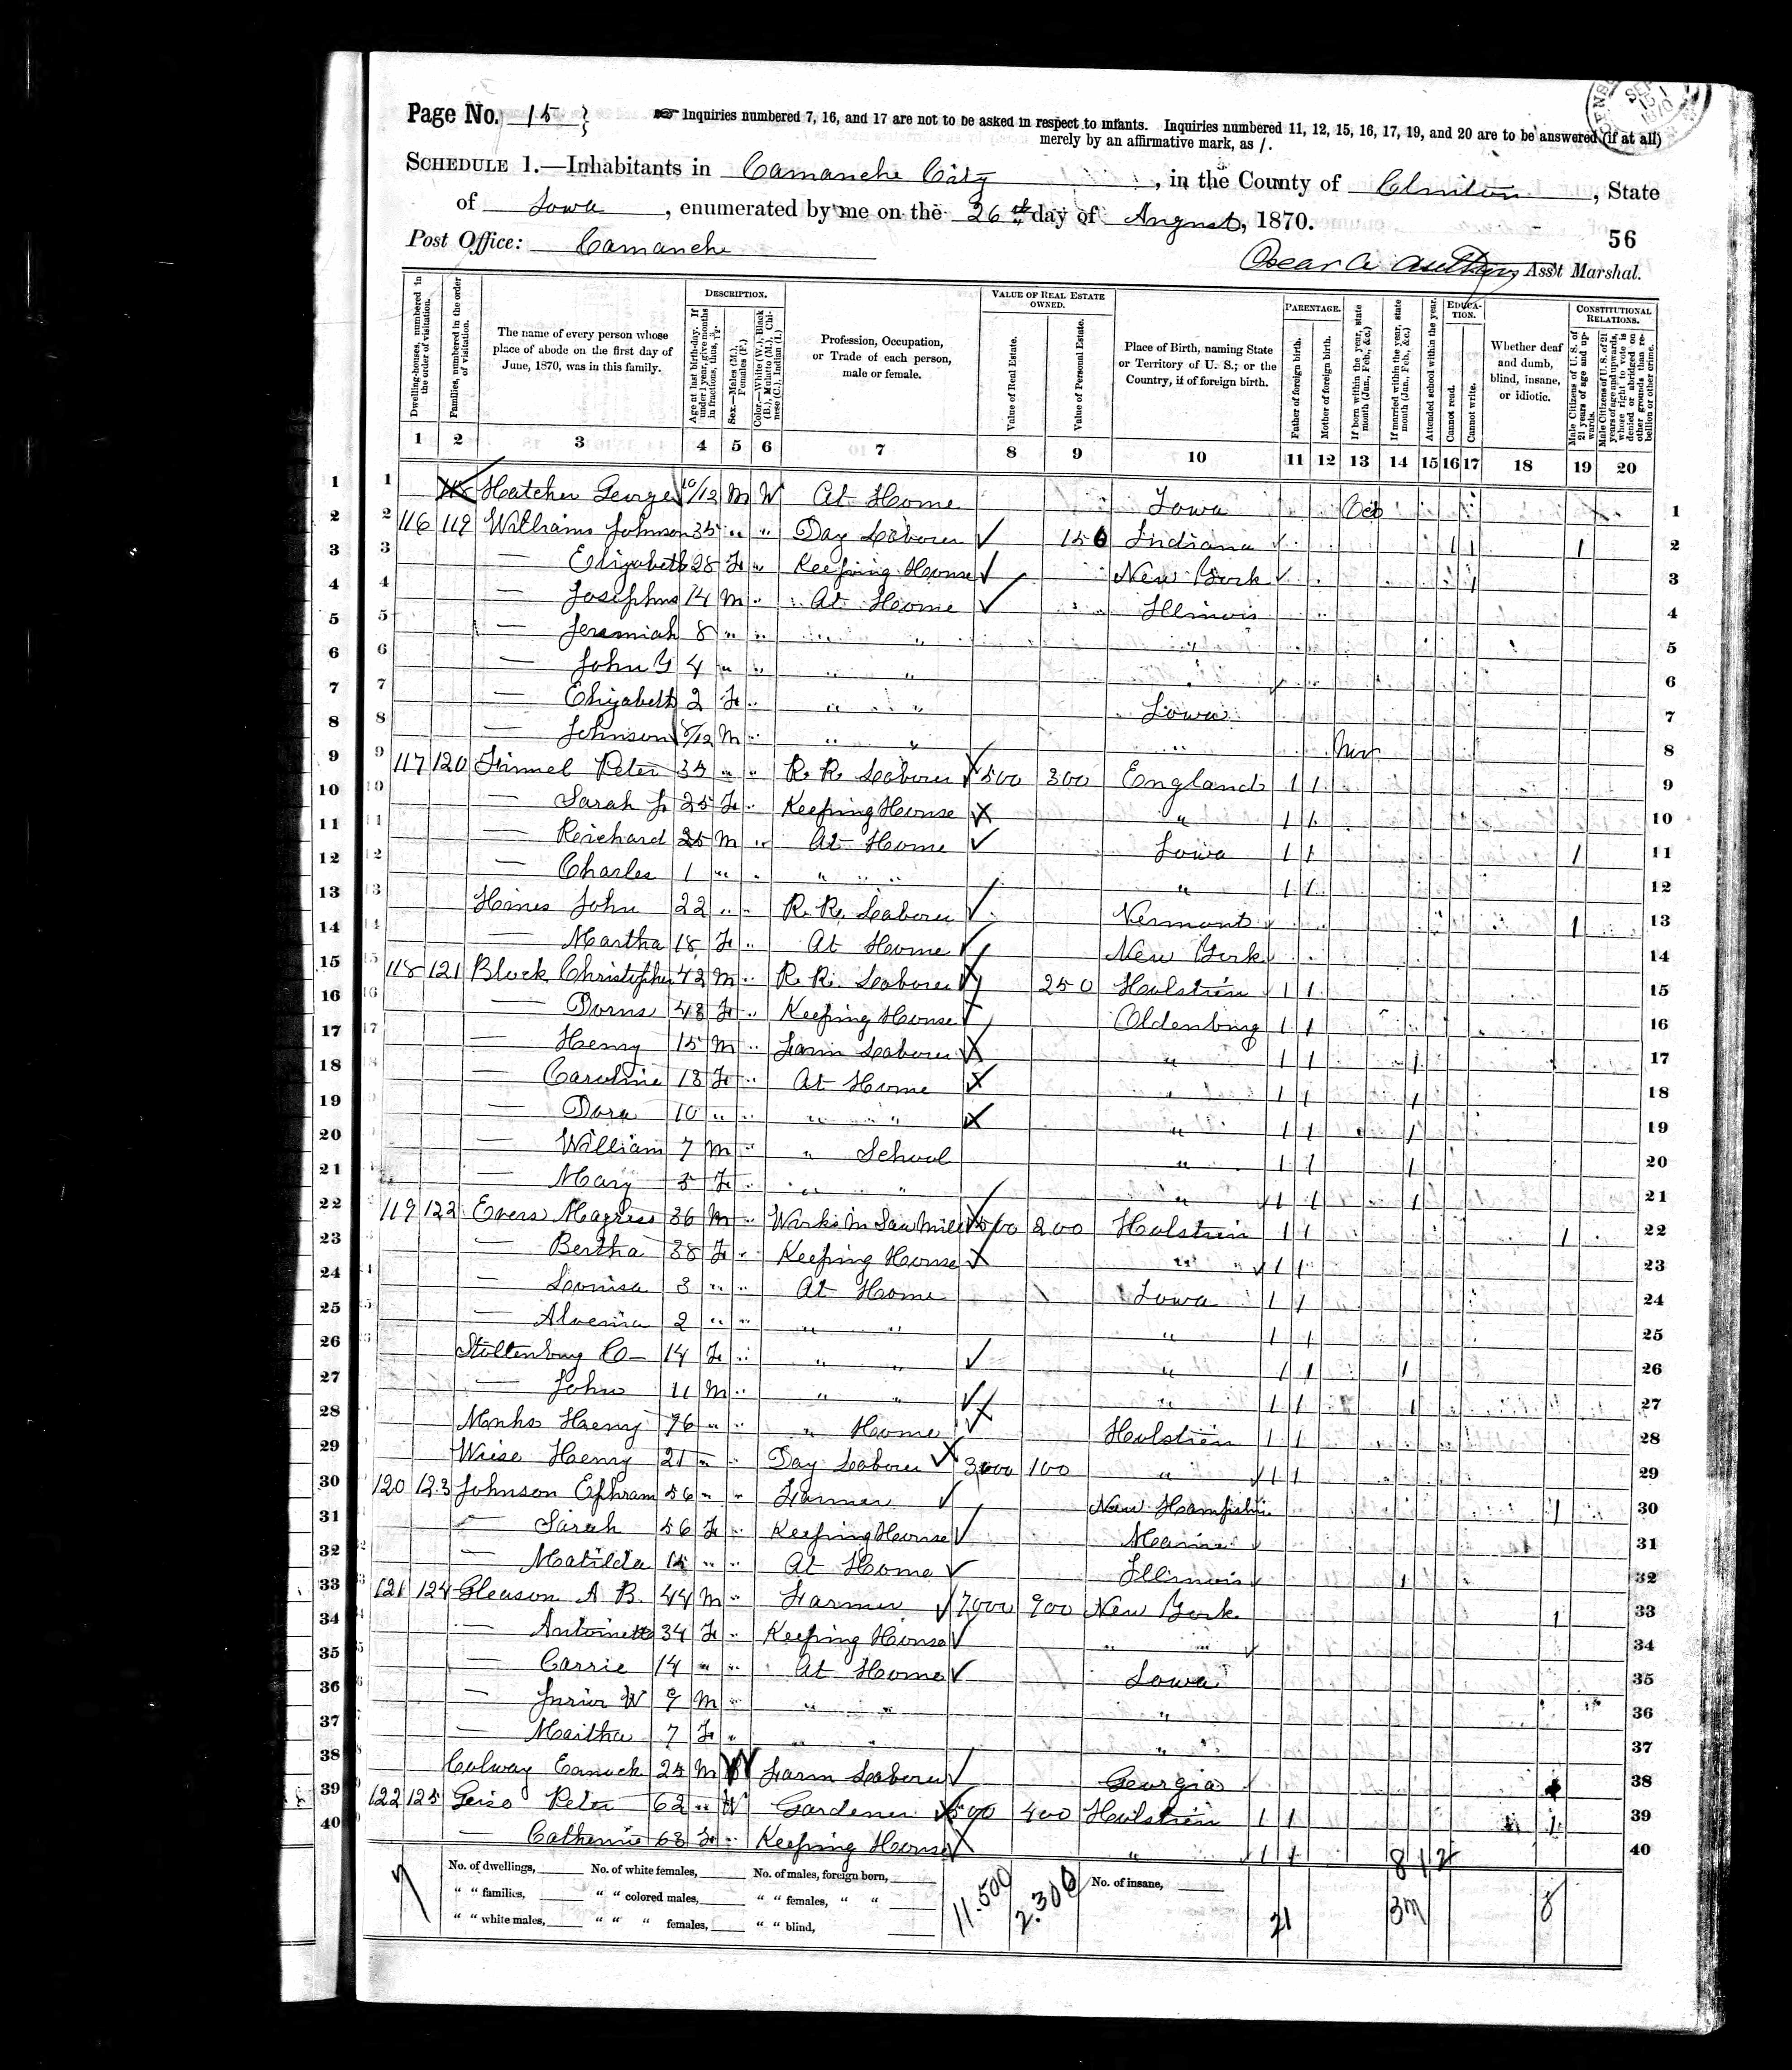 Page No. 15
Inquiries numbered 7, 16, and 17 are not to be asked in respect to infants. Inquiries numbered 11, 12, 15, 16, 17, 19, and 20 are to be answered (if at all)
merely by an affirmative mark, as /.
SCHEDULE 1.—Inhabitants in Camanche City, in the County of Clinton, State
of Iowa, enumerated by me on the 26th day of August, 1870.
Post Office: Camanche
56
Oscar A. Ass't Marshal.
Dwelling-houses, numbered in the order of visitation.
Families, numbered in the order of visitation.
The name of every person whose place of abode on the first day of June, 1870, was in this family.
DESCRIPTION.
Age at last birth-day. If under 1 year, give months in fractions, thus, 3/12.
Sex.—Males (M.), Females (F.)
Color.—White (W.), Black (B.), Mulatto (M.), Chinese (C.), Indian (I.)
Profession, Occupation, or Trade of each person, male or female.
VALUE OF REAL ESTATE OWNED.
Value of Real Estate.
Value of Personal Estate.
Place of Birth, naming State or Territory of U. S.; or the Country, if of foreign birth.
PARENTAGE.
Father of foreign birth.
Mother of foreign birth.
If born within the year, state month (Jan., Feb., &c.)
If married within the year, state month (Jan., Feb., &c.)
Attended school within the year.
EDUCATION.
Cannot read.
Cannot write.
Whether deaf and dumb, blind, insane, or idiotic.
CONSTITUTIONAL RELATIONS.
Male Citizens of U. S. of 21 years of age and upwards.
Male Citizens of U. S. of 21 years of age and upwards, whose right to vote is denied or abridged on other grounds than rebellion or other crime.
1 2 3 4 5 6 7 8 9 10 11 12 13 14 15 16 17 18 19 20
1 Hatcher George 10/12 M W At Home Iowa 1
2 116 119 Williams Johnson 35 " " Day Laborer 150 Indiana 1 1 1 2
3 — Elizabeth 28 F " Keeping House New York 1 3
4 — Josephus 14 M " At Home Illinois 4
5 — Jeremiah 8 " " " " " 5
6 — John Y 4 " " " " " 6
7 — Elizabeth 2 F " " " Iowa 7
8 — Johnson /12 M " " " " 8
9 117 120 Peter 35 " " R. R. Laborer 500 300 England 1 1 9
10 — Sarah J. 25 F " Keeping House " 1 1 10
11 — Reichard 25 M " At Home Iowa 1 1 1 11
12 — Charles 1 " " " " " 1 1 12
13 Hines John 22 " " R. R. Laborer Vermont 1 13
14 — Martha 18 F " At Home New York 14
15 118 121 Block Christopher 42 M " R. R. Laborer 250 Holstien 1 1 15
16 — Dorus 48 F " Keeping House Oldenburg 1 1 16
17 — Henry 15 M " Farm Laborer " 1 1 1 17
18 — Caroline 13 F " At Home " 1 1 1 18
19 — Dora 10 " " " " " 1 1 1 19
20 — William 7 M " " School " 1 1 1 20
21 — Mary 5 F " " " " 1 1 1 21
22 119 122 Evers 36 M " Works in Saw Mill 500 200 Holstien 1 1 1 22
23 — Bertha 38 F " Keeping House " " 1 1 23
24 — Louisa 3 " " At Home Iowa 1 1 24
25 — Alvenia 2 " " " " " 1 1 25
26 Stoltenburg C— 14 F " " " " 1 1 1 26
27 — John 11 M " " " " 1 1 1 27
28 Henry 76 " " " Home Holstien 1 1 28
29 Wiese Henry 21 " " Day Laborer 3000 100 " 1 1 29
30 120 123 Johnson Ephram 56 " " Farmer New Hampshire 1 30
31 — Sarah 56 F " Keeping House Maine 31
32 — Matilda 15 " " At Home Illinois 1 32
33 121 124 Gleason A B. 44 M " Farmer 7000 900 New York 1 33
34 — Antoinette 34 F " Keeping House " " 34
35 — Carrie 14 " " At Home Iowa 35
36 — Junior W 9 M " " " " 36
37 — Martha 7 F " " " " 37
38 Colway Eanock 25 M W Farm Laborer Georgia 38
39 122 125 Geiso Peter 62 " W Gardener 500 400 Holstien 1 1 1 39
40 — Catherine 63 F " Keeping House " 1 1 40
No. of dwellings, No. of white females, No. of males, foreign born, No. of insane,
" " families, " " colored males, " " females, " "
" " white males, " " " females, " " blind,
7 11.500 2.300 21 8 1 2 3m 8